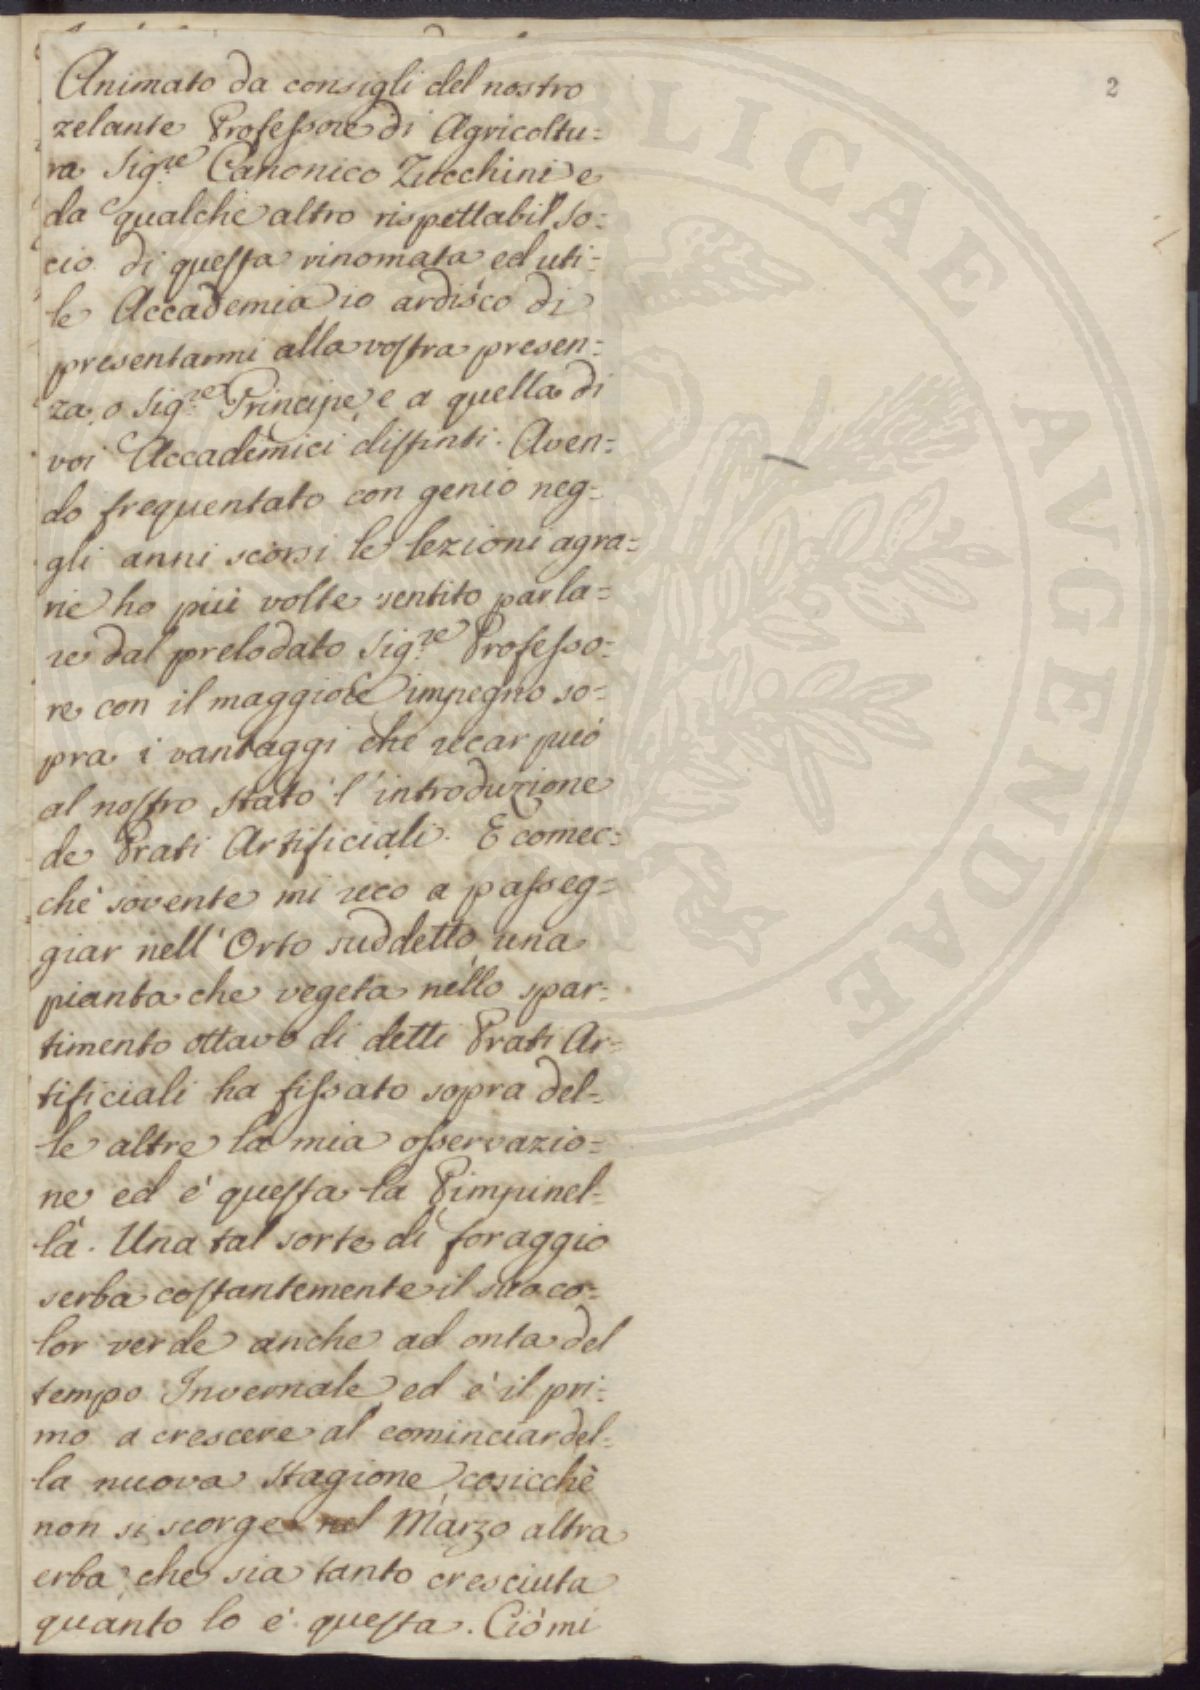 2
Animato da consigli del nostro
zelante Professore di Agricoltu=
ra Sig.re Canonico Zucchini e
da qualche altro rispettabil So=
cio di questa rinomata ed uti=
le Accademia io ardisco di
presentarmi alla vostra presen=
za o Sig.re Principe e a quella di
voi Accademici distinti. Aven=
do frequentato con genio neg=
gli anni scorsi le lezioni agra=
rie ho più volte sentito parla=
re dal prelodato Sig.re Professo=
re con il maggiore impegno so=
pra i vantaggi che recar può
al nostro stato l'introduzione
de Prati Artificiali. E comec=
chè sovente mi reco a passeg=
giar nell'Orto suddetto, una
pianta che vegeta nello spar=
timento ottavo di detti Prati Ar=
tificiali ha fissato sopra del=
le altre la mia osservazio=
ne ed è questa la Pimpinel=
la. Una tal sorte di foraggio
serba costantemente il suo co=
lor verde anche ad onta del
tempo Invernale ed è il pri=
mo a crescere al cominciar del=
la nuova stagione cosicchè
non si scorge nel Marzo altra
erba che sia tanto cresciuta
quanto lo è questa. Ciò mi
PUBLICAE AVGENDAE